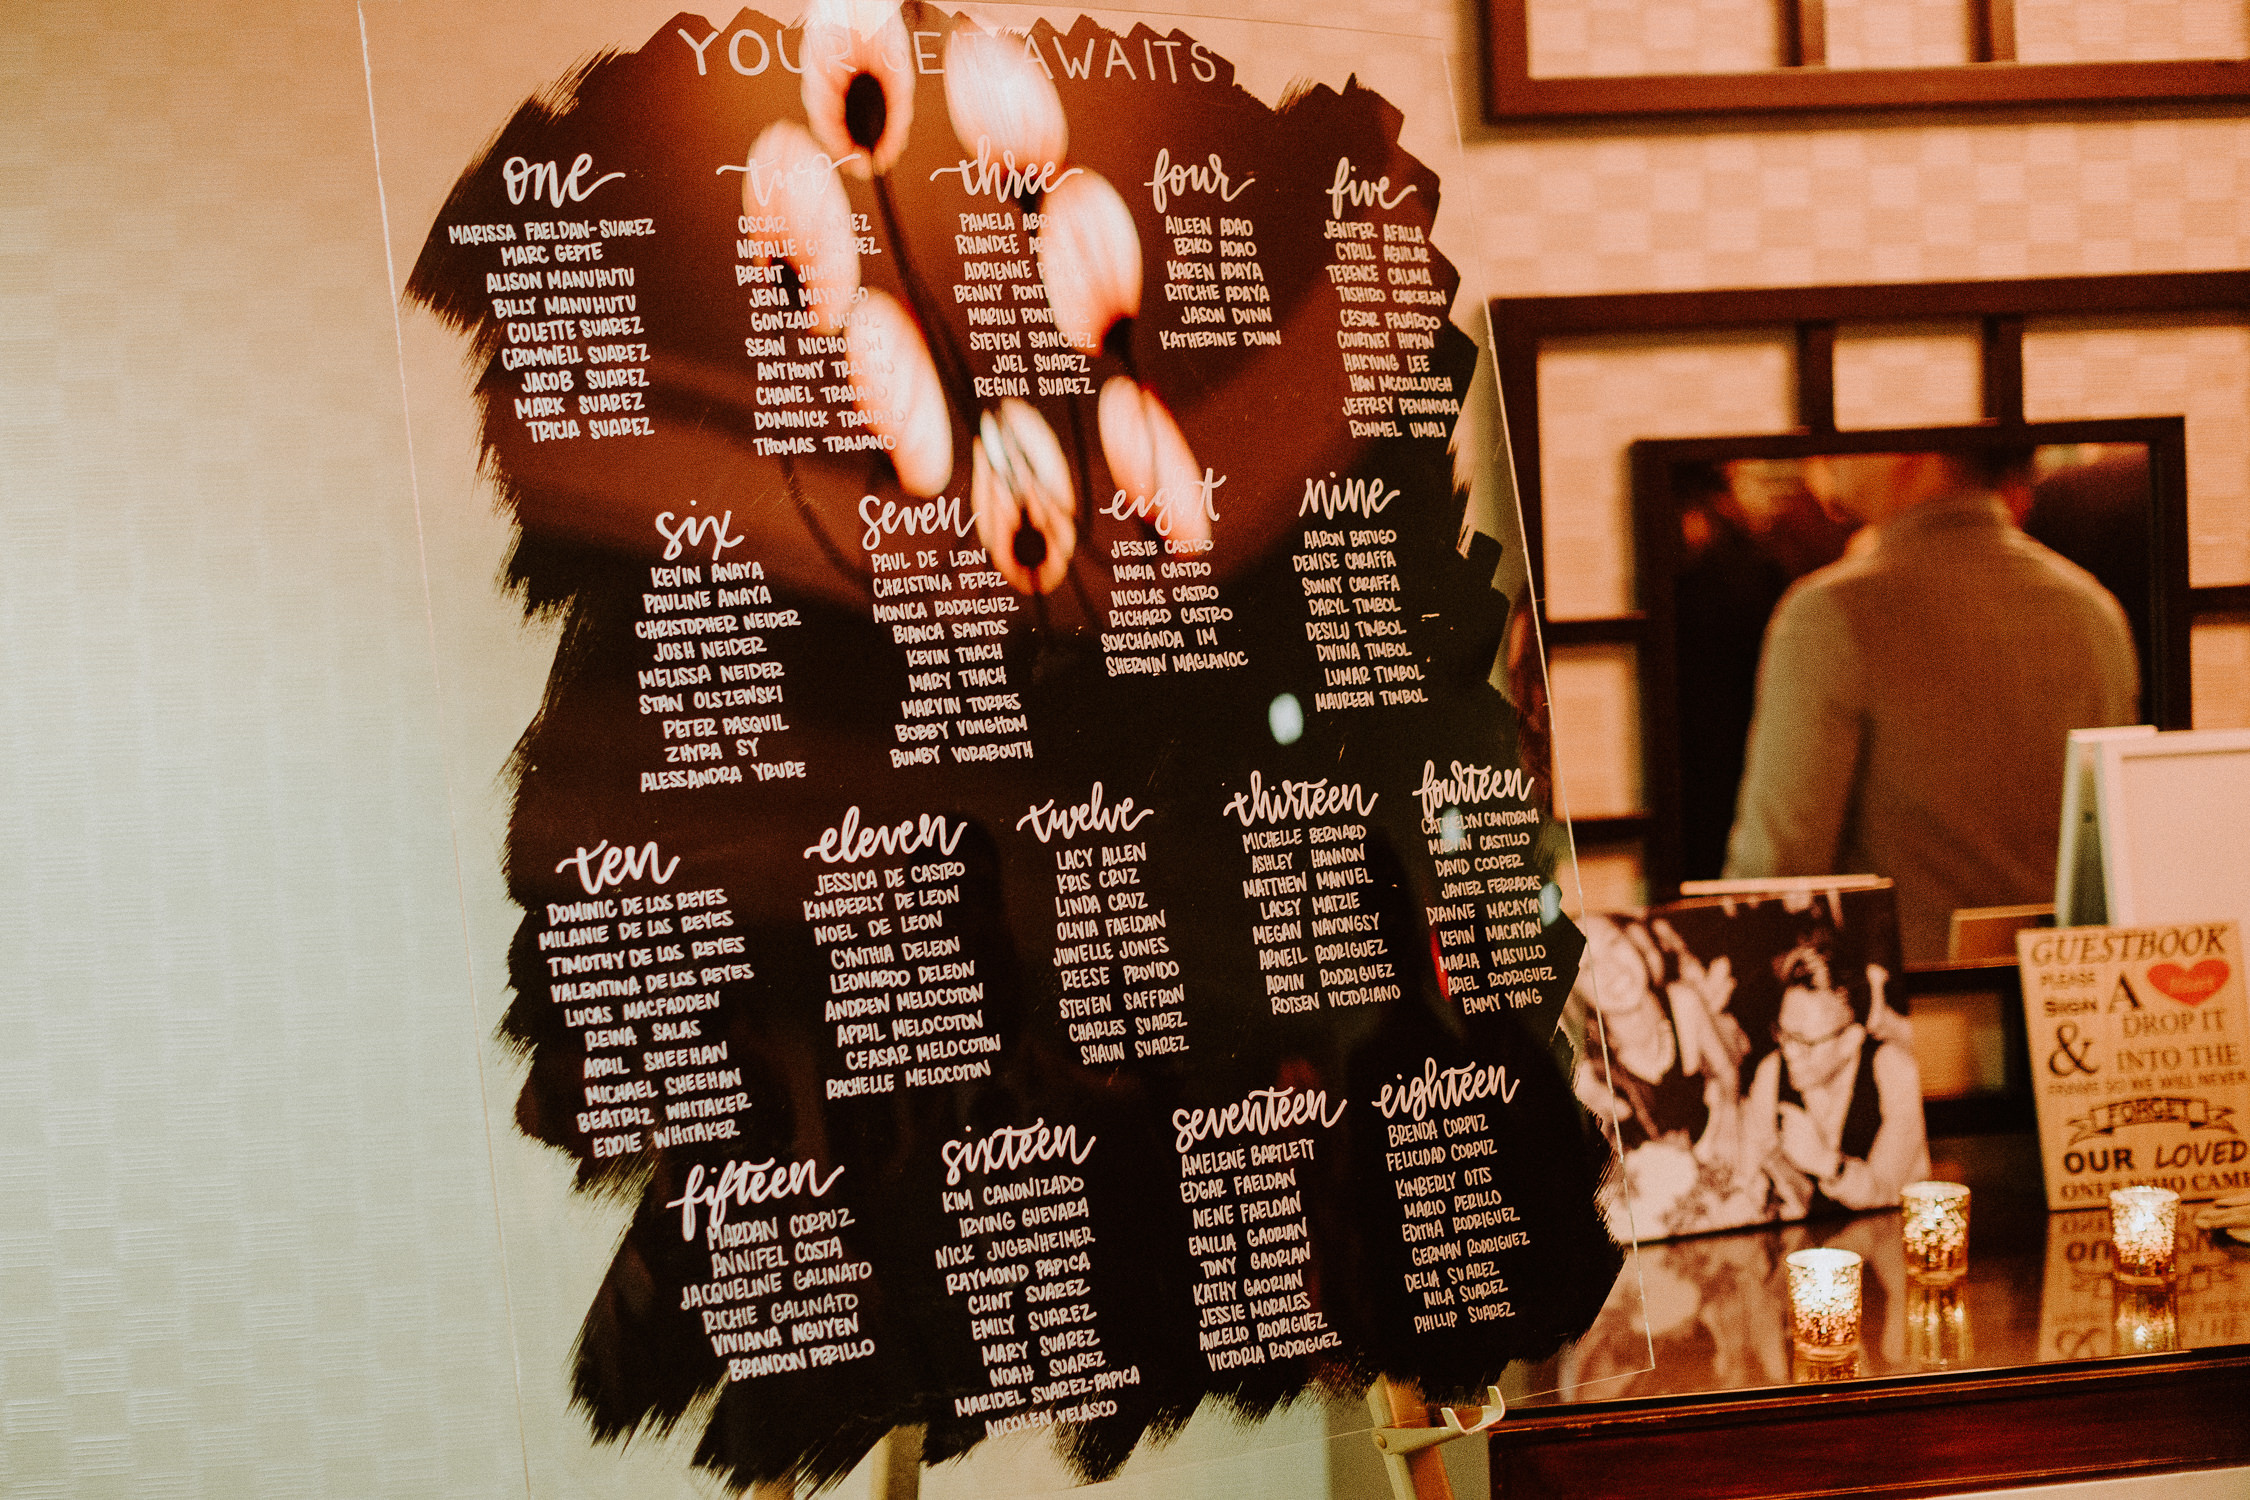 YOUR SEAT AWAITS
one
MARISSA FAELDAN-SUAREZ
MARC GEPTE
ALISON MANUHUTU
BILLY MANUHUTU
COLETTE SUAREZ
CROMWELL SUAREZ
JACOB SUAREZ
MARK SUAREZ
TRICIA SUAREZ
two
OSCAR
NATALIE
BRENT
JENA
GONZALO
SEAN NICHOLSON
ANTHONY TRAJANO
CHANEL TRAJANO
DOMINICK TRAJANO
THOMAS TRAJANO
three
PAMELA
RHANDEE
ADRIENNE
BENNY
MARILU
STEVEN SANCHEZ
JOEL SUAREZ
REGINA SUAREZ
four
AILEEN ADAO
ERIKO ADAO
KAREN ADAYA
RITCHIE ADAYA
JASON DUNN
KATHERINE DUNN
five
JENIFER AFALLA
CYRILL AGUILAR
TERENCE CALIMA
TOSHIRO CARCELEN
CESAR FAJARDO
COURTNEY HIPKIN
HAKYUNG LEE
HAN MCCOLLOUGH
JEFFREY PENAMORA
ROMMEL UMALI
six
KEVIN ANAYA
PAULINE ANAYA
CHRISTOPHER NEIDER
JOSH NEIDER
MELISSA NEIDER
STAN OLSZEWSKI
PETER PASQUIL
ZHYRA SY
ALESSANDRA YRURE
seven
PAUL DE LEON
CHRISTINA PEREZ
MONICA RODRIGUEZ
BIANCA SANTOS
KEVIN THACH
MARY THACH
MARVIN TORRES
BOBBY VONGKOM
BUMBY VORABOUTH
eight
JESSIE CASTRO
MARIA CASTRO
NICOLAS CASTRO
RICHARD CASTRO
SOKCHANDA IM
SHERWIN MAGLANOC
nine
AARON BATUGO
DENISE CARAFFA
SONNY CARAFFA
DARYL TIMBOL
DESILU TIMBOL
DIVINA TIMBOL
LUMAR TIMBOL
MAUREEN TIMBOL
ten
DOMINIC DE LOS REYES
MILANIE DE LOS REYES
TIMOTHY DE LOS REYES
VALENTINA DE LOS REYES
LUCAS MACFADDEN
REINA SALAS
APRIL SHEEHAN
MICHAEL SHEEHAN
BEATRIZ WHITAKER
EDDIE WHITAKER
eleven
JESSICA DE CASTRO
KIMBERLY DE LEON
NOEL DE LEON
CYNTHIA DELEON
LEONARDO DELEON
ANDREN MELOCOTON
APRIL MELOCOTON
CEASAR MELOCOTON
RACHELLE MELOCOTON
twelve
LACY ALLEN
KRIS CRUZ
LINDA CRUZ
OLIVIA FAELDAN
JUNELLE JONES
REESE PROVIDO
STEVEN SAFFRON
CHARLES SUAREZ
SHAUN SUAREZ
thirteen
MICHELLE BERNARD
ASHLEY HANNON
MATTHEW MANUEL
LACEY MATZIE
MEGAN NAVONGSY
ARNEIL RODRIGUEZ
ARVIN RODRIGUEZ
ROTSEN VICTORIANO
fourteen
CANTORNA
CASTILLO
DAVID COOPER
JAVIER FERRADAS
DIANNE MACAYAN
KEVIN MACAYAN
MARIA MASULLO
ARIEL RODRIGUEZ
EMMY YANG
fifteen
MARDAN CORPUZ
ANNIFEL COSTA
JACQUELINE GALINATO
RICHIE GALINATO
VIVIANA NGUYEN
BRANDON PERILLO
sixteen
KIM CANONIZADO
IRVING GUEVARA
NICK JUGENHEIMER
RAYMOND PAPICA
CLINT SUAREZ
EMILY SUAREZ
MARY SUAREZ
NOAH SUAREZ
MARIDEL SUAREZ-PAPICA
NICOLEN VELASCO
seventeen
AMELENE BARTLETT
EDGAR FAELDAN
NENE FAELDAN
EMILIA GAORIAN
TONY GAORIAN
KATHY GAORIAN
JESSIE MORALES
AURELIO RODRIGUEZ
VICTORIA RODRIGUEZ
eighteen
BRENDA CORPUZ
FELICIDAD CORPUZ
KIMBERLY OTIS
MARIO PERILLO
EDITHA RODRIGUEZ
GERMAN RODRIGUEZ
DELIA SUAREZ
NILA SUAREZ
PHILLIP SUAREZ
GUESTBOOK
PLEASE
SIGN A
& DROP IT
INTO THE
FRAME SO WE WILL NEVER
FORGET
OUR LOVED
ONES WHO CAME